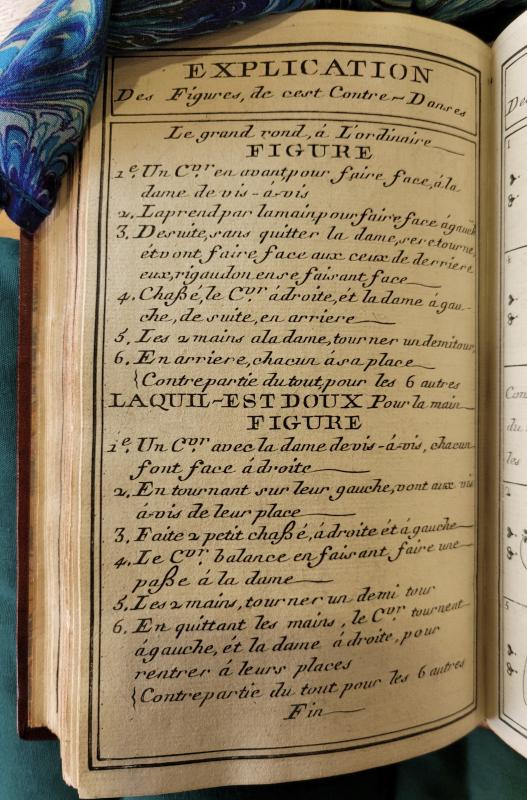 EXPLICATION
Des Figures, de cest Contre-Danses
Le grand rond, á L'ordinaire
FIGURE
1.e Un C.vr en avant, pour faire face, á la
dame de vis-á-vis
2. La prend par la main, pour faire face á gauch
3. De suite, sans quitter la dame, se retourne,
ét vont faire face aux ceux de derriere
eux, rigaudon en se faisant face
4. Chaßé, le C.vr á droite, ét la dame á gau-
che, de suite, en arriere
5. Les 2 mains a la dame, tourner un demi tour,
6. En arriere, chacun á sa place
{Contrepartie du tout, pour les 6 autres
LA QUIL-EST DOUX Pour la main
FIGURE
1.e Un C.vr avec la dame de vis-á-vis, chacun
font face á droite
2. En tournant sur leur gauche, vont aux vis
á-vis de leur place
3. Faite 2 petit chaßé, á droite ét á gauche
4. Le C.vr balance en faisant faire une
paße á la dame
5. Les 2 mains, tourner un demi tour
6. En quittant les mains, le C.vr tournent
á gauche, ét la dame á droite, pour
rentrer á leurs places
{Contrepartie du tout pour les 6 autres
Fin
De
1
4
Con
du
les
2
5